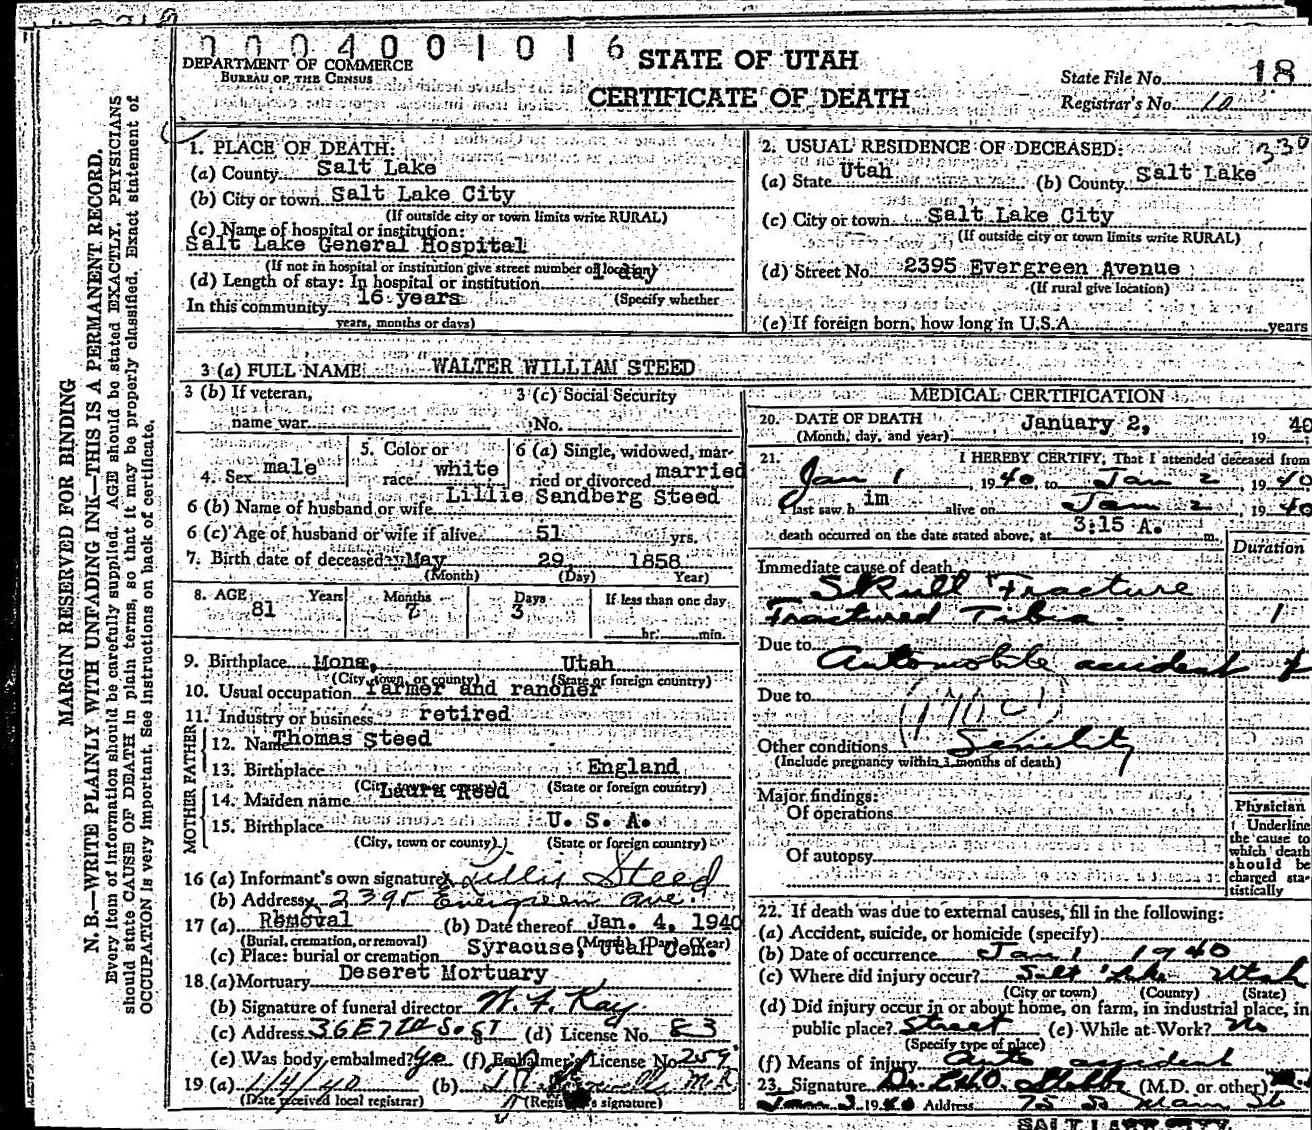 0004001016
STATE OF UTAH
DEPARTMENT OF COMMERCE
BUREAU OF THE CENSUS
CERTIFICATE OF DEATH
State File No. 18
Registrar's No. 10
MARGIN RESERVED FOR BINDING
N. B.—WRITE PLAINLY WITH UNFADING INK—THIS IS A PERMANENT RECORD.
Every item of information should be carefully supplied. AGE should be stated EXACTLY. PHYSICIANS
should state CAUSE OF DEATH in plain terms, so that it may be properly classified. Exact statement of
OCCUPATION is very important. See instructions on back of certificate.
1. PLACE OF DEATH:
(a) County Salt Lake
(b) City or town Salt Lake City
(If outside city or town limits write RURAL)
(c) Name of hospital or institution:
Salt Lake General Hospital
(If not in hospital or institution give street number or location)
(d) Length of stay: In hospital or institution 1 day
(Specify whether
In this community 16 years
years, months or days)
2. USUAL RESIDENCE OF DECEASED: 330
(a) State Utah (b) County Salt Lake
(c) City or town Salt Lake City
(If outside city or town limits write RURAL)
(d) Street No. 2395 Evergreen Avenue
(If rural give location)
(e) If foreign born, how long in U.S.A. years
3 (a) FULL NAME WALTER WILLIAM STEED
3 (b) If veteran,
name war
3 (c) Social Security
No.
4. Sex male
5. Color or
race white
6 (a) Single, widowed, mar-
ried or divorced married
6 (b) Name of husband or wife Lillie Sandberg Steed
6 (c) Age of husband or wife if alive 51 yrs.
7. Birth date of deceased May 29, 1858
(Month) (Day) Year)
8. AGE Years Months Days If less than one day
81 7 3
hr. min.
9. Birthplace Mona, Utah
(City, town, or county) (State or foreign country)
10. Usual occupation farmer and rancher
11. Industry or business retired
FATHER
12. Name Thomas Steed
13. Birthplace England
(City, town or county) (State or foreign country)
MOTHER
14. Maiden name Laura Reed
15. Birthplace U. S. A.
(City, town or county) (State or foreign country)
16 (a) Informant's own signature Lillie Steed
(b) Address 2395 Evergreen Ave.
17 (a) Removal (b) Date thereof Jan. 4, 1940
(Burial, cremation, or removal) (Month) (Day) (Year)
(c) Place: burial or cremation Syracuse, Utah Cem.
18 (a) Mortuary Deseret Mortuary
(b) Signature of funeral director W. F. Kay
(c) Address 36 E 7th So. St (d) License No. 83
(e) Was body embalmed? Yes (f) Embalmer's License No. 259
19 (a) 1/4/40 (b)
(Date received local registrar) (Registrar's signature)
MEDICAL CERTIFICATION
20. DATE OF DEATH
(Month, day, and year) January 2, 1940
21. I HEREBY CERTIFY; That I attended deceased from
Jan 1, 1940, to Jan 2, 1940
I last saw him alive on Jan 2, 1940
death occurred on the date stated above, at 3:15 A. m.
Duration
Immediate cause of death
Skull Fracture
Fractured Tibia 1
Due to Automobile accident
Due to
170c
Other conditions Senility
(Include pregnancy within 3 months of death)
Major findings:
Of operations
Of autopsy
Physician
Underline
the cause to
which death
should be
charged sta-
tistically
22. If death was due to external causes, fill in the following:
(a) Accident, suicide, or homicide (specify)
(b) Date of occurrence Jan 1 1940
(c) Where did injury occur? Salt Lake Utah
(City or town) (County) (State)
(d) Did injury occur in or about home, on farm, in industrial place, in
public place? Street (e) While at Work? No
(Specify type of place)
(f) Means of injury Auto accident
23. Signature (M.D. or other)
Jan 3 1940 Address 75 So Main St
SALT LAKE CITY